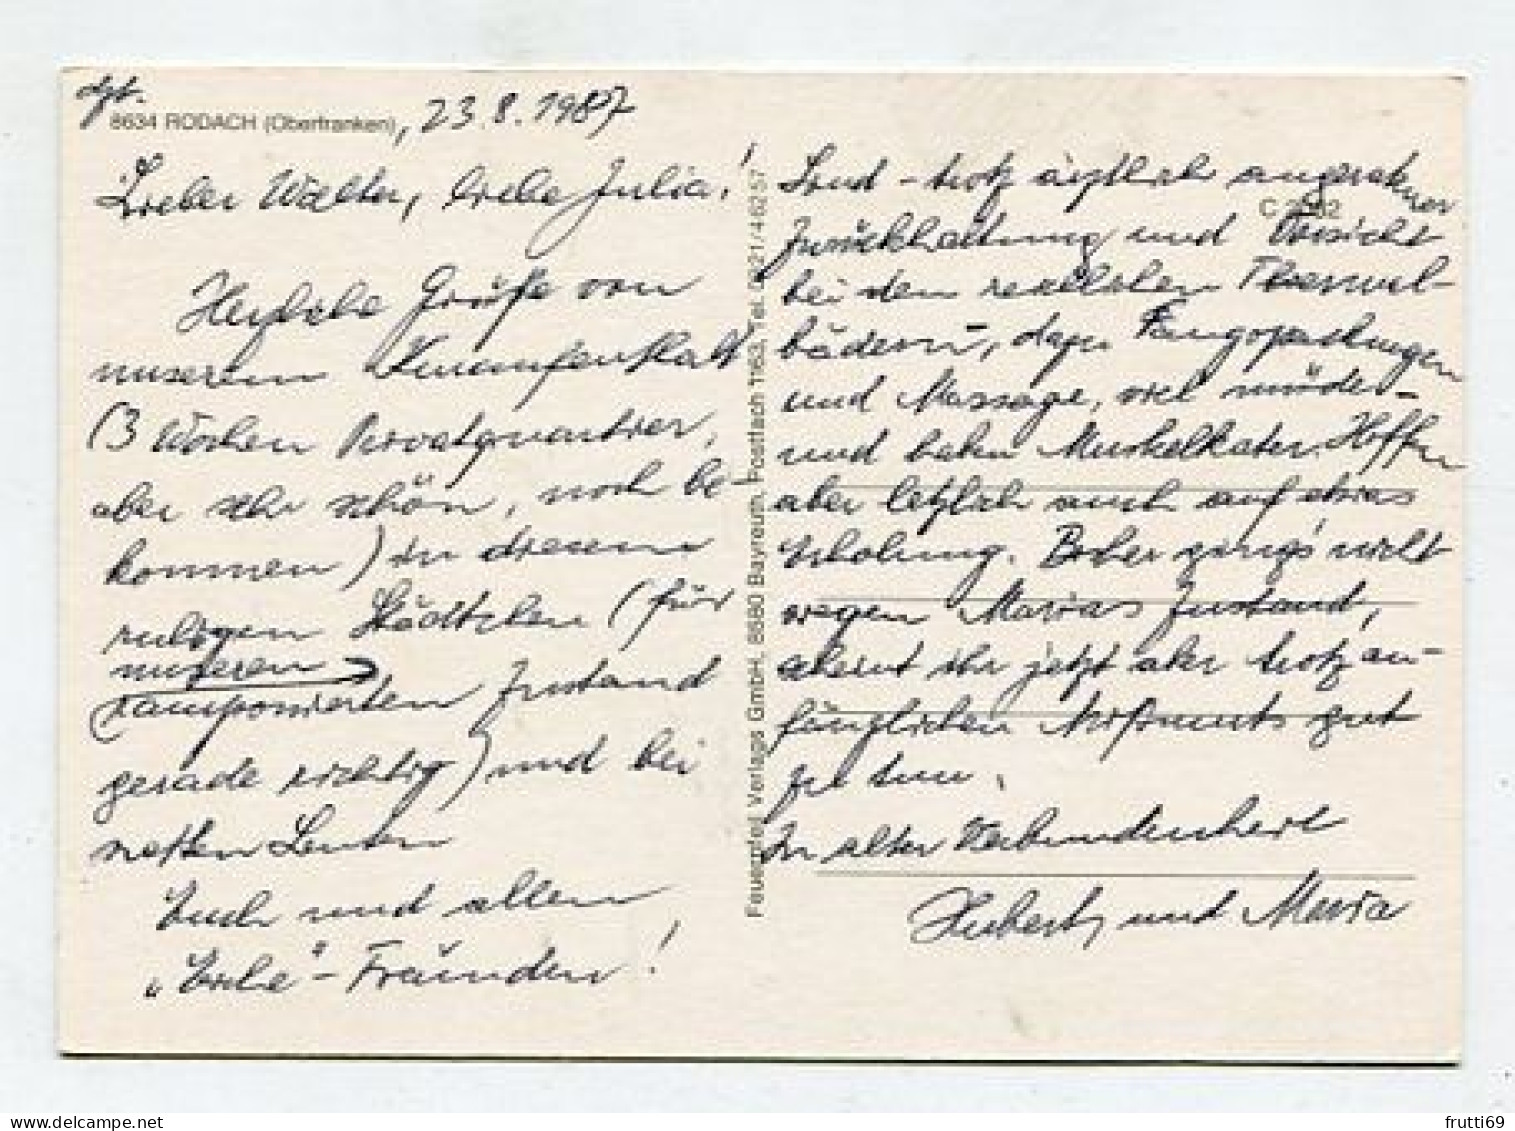 8634 RODACH (Oberfranken), 23.8.1987
Lieber Walter, liebe Julia!
Herzliche Grüße von
unserem Kuraufenthalt
(3 Wochen Privatquartier,
aber sehr schön, noch be-
kommen) in diesem
ruhigen Städtchen (für
unseren
ramponierten Zustand
gerade richtig) und bei
netten Leuten
Euch und allen
"Eiche"-Freunden!
Sind - trotz ärztlich angeratener
Zurückhaltung und Vorsicht
bei den reellsten Thermal-
bädern -, dazu Fangopackungen
und Massage, viel müder
und haben Muskelkater. Hoffen
aber letztlich auch auf etwas
Erholung. Bisher ging's nicht
wegen Marias Zustand,
scheint ihr jetzt aber trotz an-
fänglichen Mißmuts gut
zu tun.
In alter Verbundenheit
Hubert und Maria
C 2262
Feuerpfeil Verlags GmbH, 8580 Bayreuth, Postfach 1163, Tel. 0921/46257
frutti69